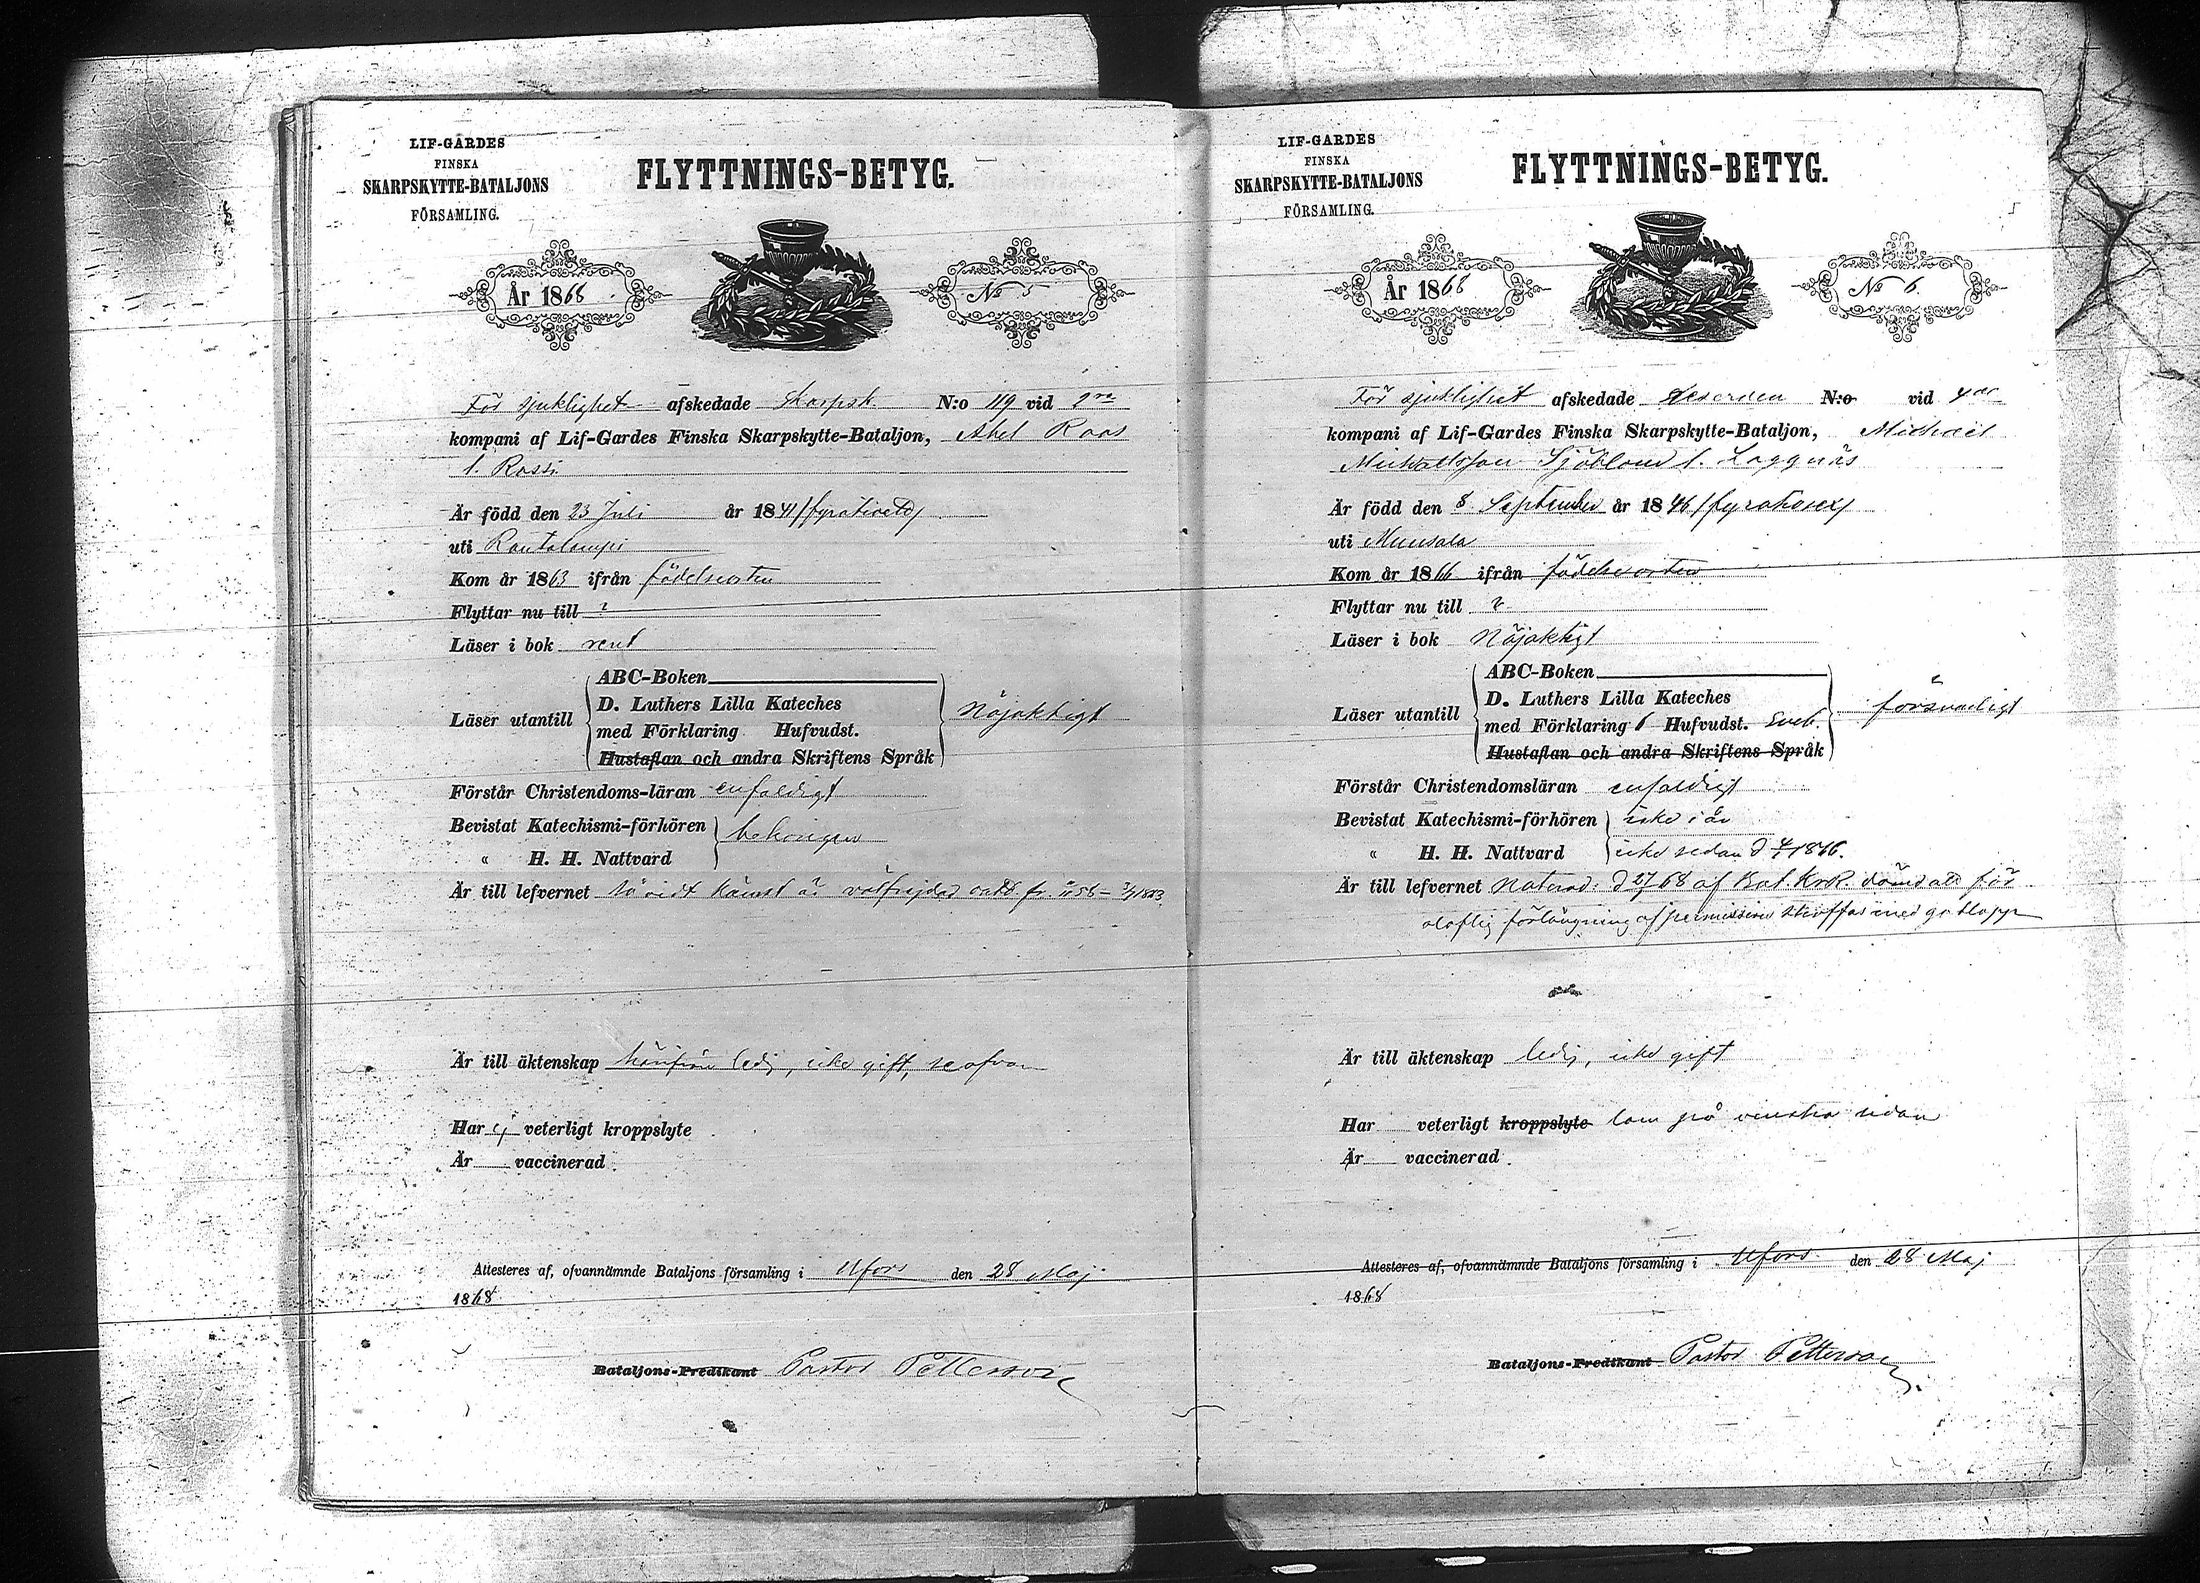 LIF-GARDES
FINSKA
SKARPSKYTTE-BATALJONS
FÖRSAMLING.
FLYTTNINGS-BETYG.
År 1868
No 5
För sjuklighet afskedade Skarpsk. N:o 119 vid 2ra
kompani af Lif-Gardes Finska Skarpskytte-Bataljon, Abel Roos
l. Rossi
Är född den 23 Juli år 1841 /fyrationett/
uti Rautalampi
Kom år 1863 ifrån födelseorten
Flyttar nu till ?
Läser i bok rent
Läser utantill
ABC-Boken
D. Luthers Lilla Kateches
med Förklaring Hufvudst.
Hustaflan och andra Skriftens Språk
Nöjaktigt
Förstår Christendoms-läran enfaldigt
Bevistat Katechismi-förhören
" H. H. Nattvard
behörigen
Är till lefvernet så vidt kändt är välfrejdad
Är till äktenskap härifrån ledig, icke gift, se ofvan
Har ej veterligt kroppslyte
Är vaccinerad.
Attesteres af, ofvannämnde Bataljons församling i Hfors den 28 Maj
1868
Bataljons-Predikant Pastor Petterson
LIF-GARDES
FINSKA
SKARPSKYTTE-BATALJONS
FÖRSAMLING.
FLYTTNINGS-BETYG.
År 1868
No 6.
För sjuklighet afskedade N:o vid 4de
kompani af Lif-Gardes Finska Skarpskytte-Bataljon, Michael
Michelsson Sjöblom l. Laggnäs
Är född den 8 September år 1846 /fyratiosex/
uti Munsala
Kom år 1866 ifrån födelseorten
Flyttar nu till ?
Läser i bok Nöjaktigt
Läser utantill
ABC-Boken
D. Luthers Lilla Kateches
med Förklaring 6 Hufvudst.
Hustaflan och andra Skriftens Språk
försvarligt
Förstår Christendomsläran enfaldigt
Bevistat Katechismi-förhören icke i år
" H. H. Nattvard icke sedan d 1866.
Är till lefvernet af Bat. KrR. dömd att för
olaflig förlängning af permission straffas med
Är till äktenskap ledig, icke gift
Har veterligt kroppslyte lam på venstra sidan
Är vaccinerad.
Attesteres af, ofvannämnde Bataljons församling i Hfors den 28 Maj
1868
Bataljons-Predikant Pastor Petterson